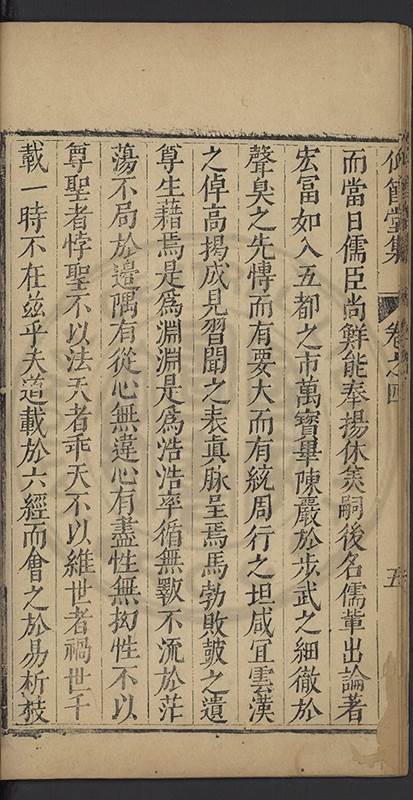 仰節堂集 卷之四 五
而當日儒臣尚鮮能奉揚休美嗣後名儒輩出論著
宏富如入五都之市萬寶畢陳嚴於步武之細徹於
聲臭之先慱而有要大而有統周行之坦咸宜雲漢
之倬高揭成見習聞之表真脉呈焉馬勃敗皷之遺
尊生藉焉是爲淵淵是爲浩浩率循無斁不流於茫
蕩不局於邉隅有從心無違心有盡性無拗性不以
尊聖者悖聖不以法天者乖天不以維世者禍世千
載一時不在兹乎夫道載於六經而會之於易析𥘉